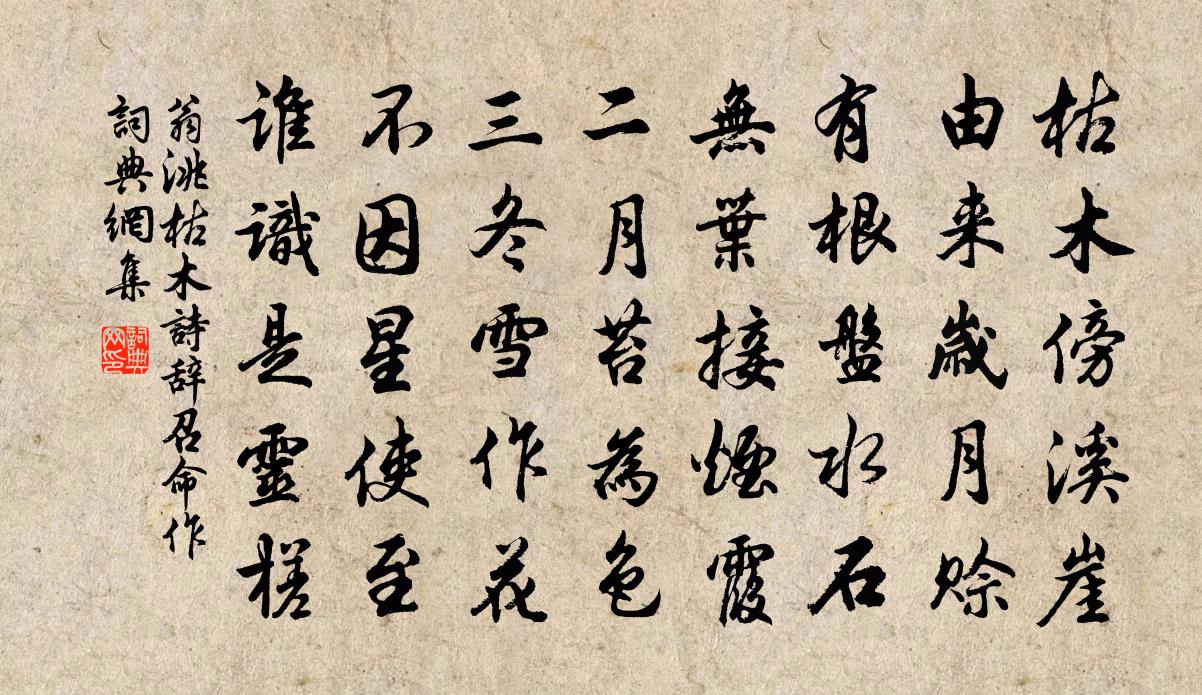 枯木傍溪崖
由来歲月賒
有根盤水石
無葉接煙霞
二月苔為色
三冬雪作花
不因星使至
誰識是靈槎
翁洮枯木詩辞召命作
詞典網集
詞典網印